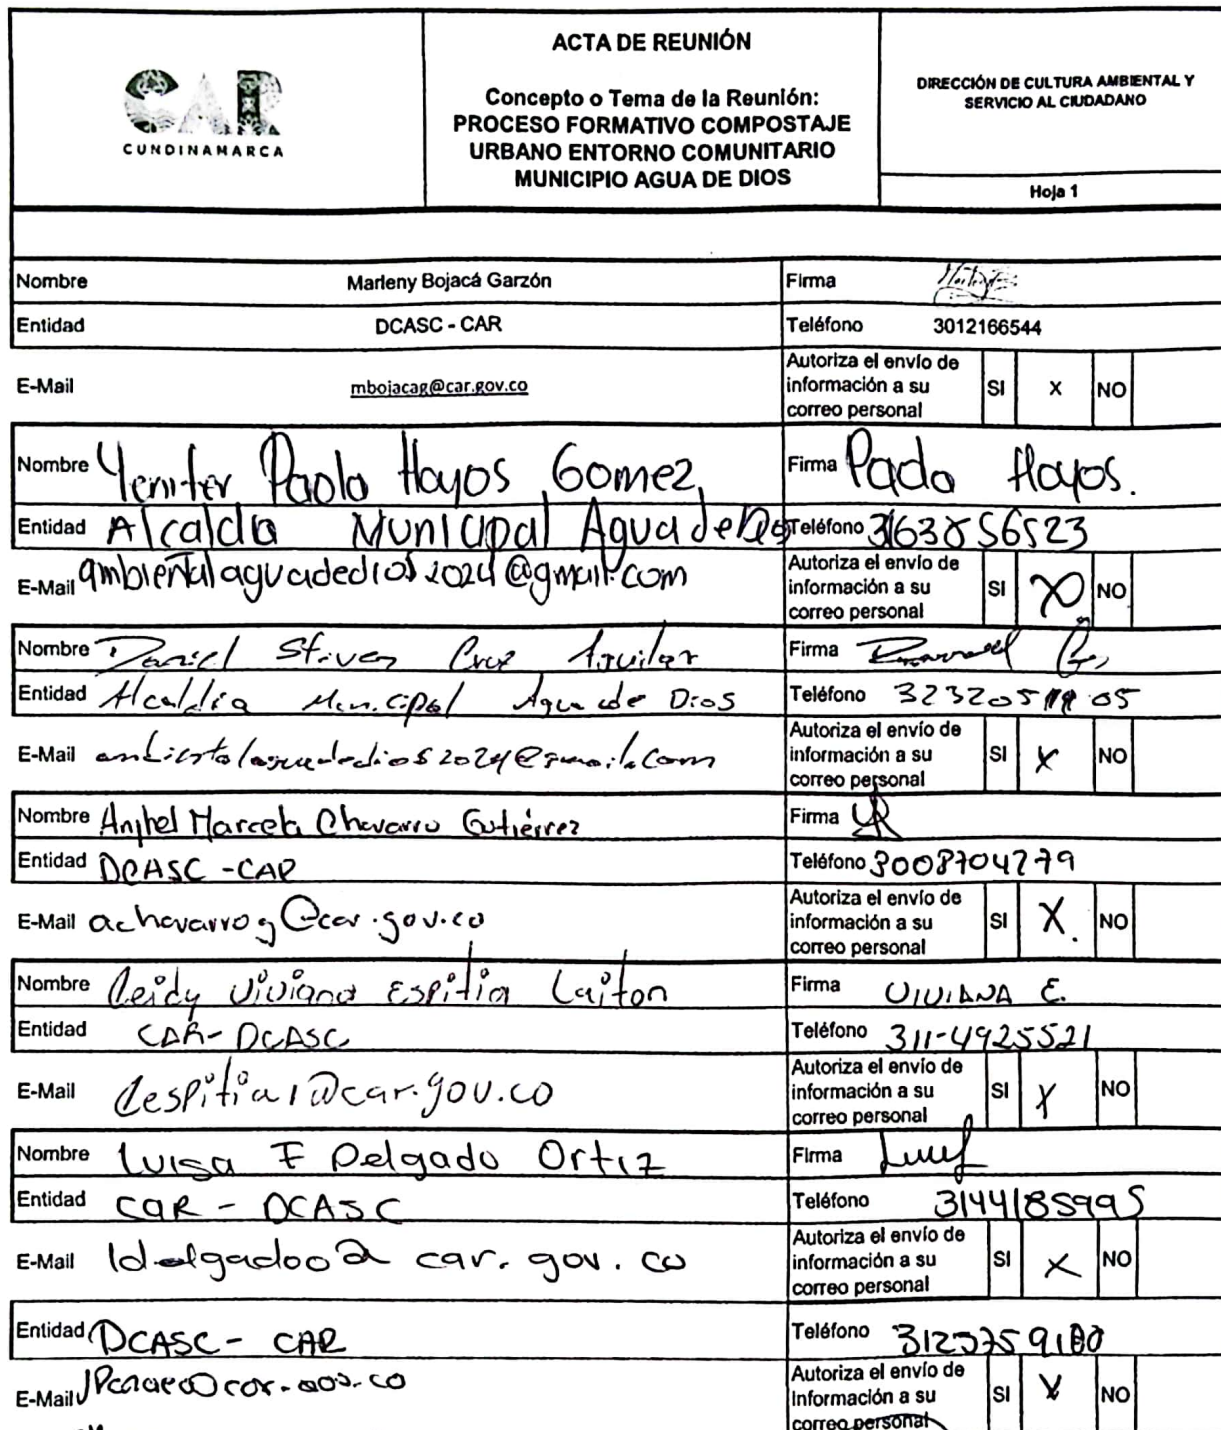 CAR
CUNDINAMARCA
ACTA DE REUNIÓN
Concepto o Tema de la Reunión:
PROCESO FORMATIVO COMPOSTAJE
URBANO ENTORNO COMUNITARIO
MUNICIPIO AGUA DE DIOS
DIRECCIÓN DE CULTURA AMBIENTAL Y
SERVICIO AL CIUDADANO
Hoja 1
Nombre Marleny Bojacá Garzón Firma
Entidad DCASC - CAR Teléfono 3012166544
E-Mail mbojacag@car.gov.co
Autoriza el envío de
información a su
correo personal
SI x NO
Nombre Yenifer Paola Hoyos Gomez Firma Paola Hoyos.
Entidad Alcaldia Municipal Agua de Dios Teléfono 3163856523
E-Mail ambientalaguadedios2024@gmail.com
Autoriza el envío de
información a su
correo personal
SI X NO
Nombre Daniel Stiven Cruz Aguilar Firma
Entidad Alcaldía Municipal Agua de Dios Teléfono
E-Mail ambientalaguadedios2024@gmail.com
Autoriza el envío de
información a su
correo personal
SI x NO
Nombre Anjhel Marcela Chavarro Gutiérrez Firma
Entidad DCASC - CAR Teléfono 3008704279
E-Mail achavarrog@car.gov.co
Autoriza el envío de
información a su
correo personal
SI X. NO
Nombre Leidy Viviana Espitia Laiton Firma VIVIANA E.
Entidad CAR - DCASC Teléfono 311-4925521
E-Mail lespitial@car.gov.co
Autoriza el envío de
información a su
correo personal
SI X NO
Nombre Luisa F Delgado Ortiz Firma
Entidad CAR - DCASC Teléfono 3144185995
E-Mail ldelgadoo@car.gov.co
Autoriza el envío de
información a su
correo personal
SI X NO
Entidad DCASC - CAR Teléfono
E-Mail
Autoriza el envío de
información a su
correo personal
SI X NO